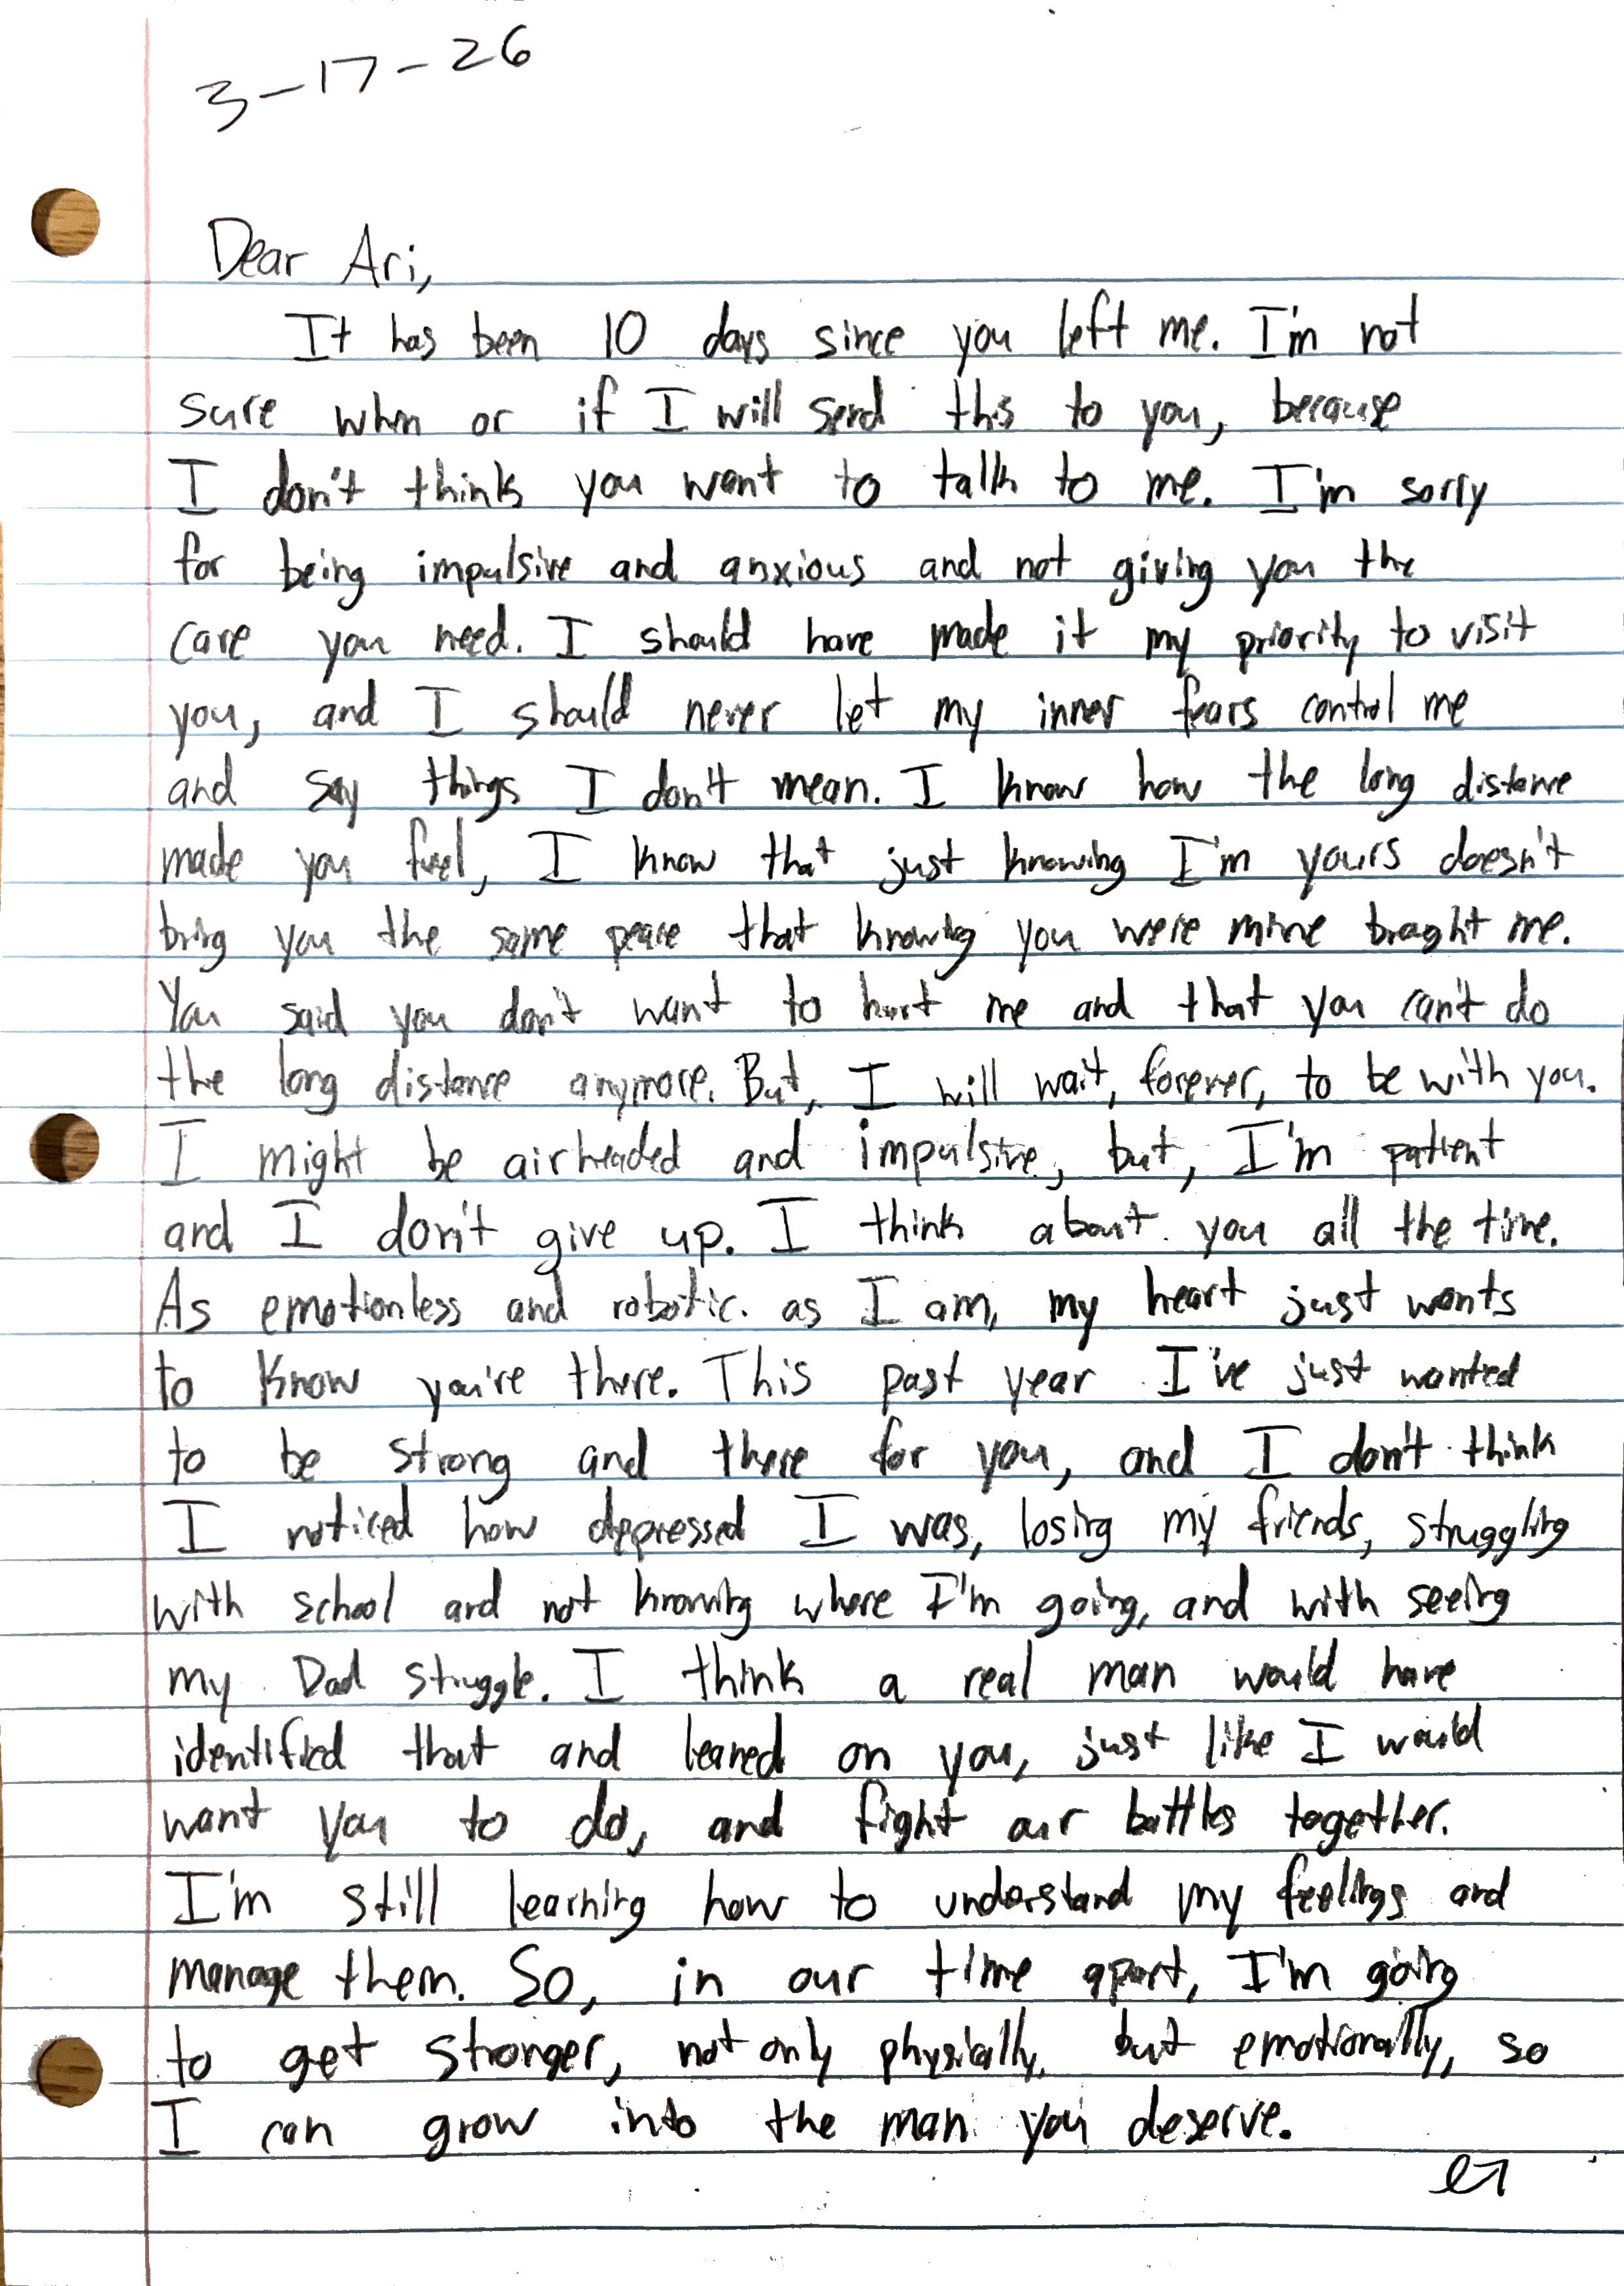 3-17-26
Dear Ari,
It has been 10 days since you left me. I'm not
sure when or if I will send this to you, because
I don't think you want to talk to me. I'm sorry
for being impulsive and anxious and not giving you the
care you need. I should have made it my priority to visit
you, and I should never let my inner fears control me
and say things I don't mean. I know how the long distance
made you feel, I know that just knowing I'm yours doesn't
bring you the same peace that knowing you were mine braght me.
You said you don't want to hurt me and that you can't do
the long distance anymore. But, I will wait, forever, to be with you.
I might be airheaded and impulsive, but, I'm patient
and I don't give up. I think about you all the time.
As emotionless and robotic as I am, my heart just wants
to know you're there. This past year I've just wanted
to be strong and there for you, and I don't think
I noticed how depressed I was, losing my friends, struggling
with school and not knowing where I'm going, and with seeing
my Dad struggle. I think a real man would have
identified that and leaned on you, just like I would
want you to do, and fight our battles together.
I'm still learning how to understand my feelings and
manage them. So, in our time apart, I'm going
to get stronger, not only physically, but emotionally, so
I can grow into the man you deserve.